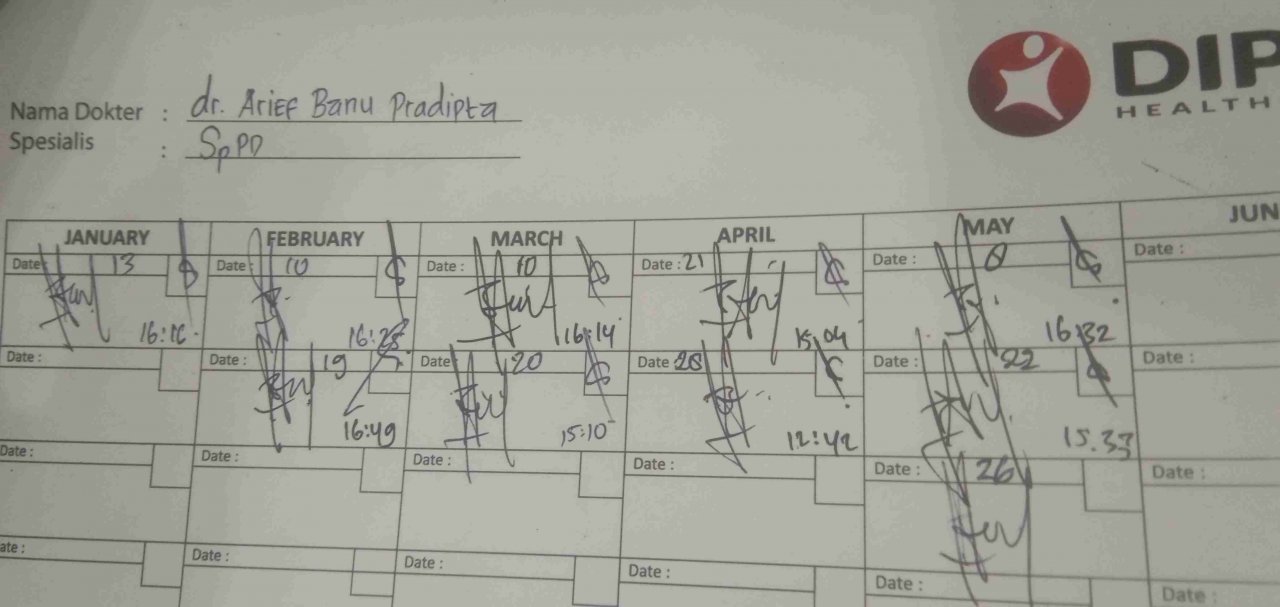 DIP
HEALTH
Nama Dokter : dr. Arief Banu Pradipta
Spesialis : SpPD
JANUARY FEBRUARY MARCH APRIL MAY JUN
Date : 13 Date : 10 Date : 10 Date : 21 Date : Date :
16:14 15:04 16:32
Date : Date : 19 Date : 20 Date 28 Date : 22 Date :
16:49 15:10 12:42 15.33
Date : Date : Date : Date : Date : 26 Date :
ate : Date : Date : Date : Date : Date :